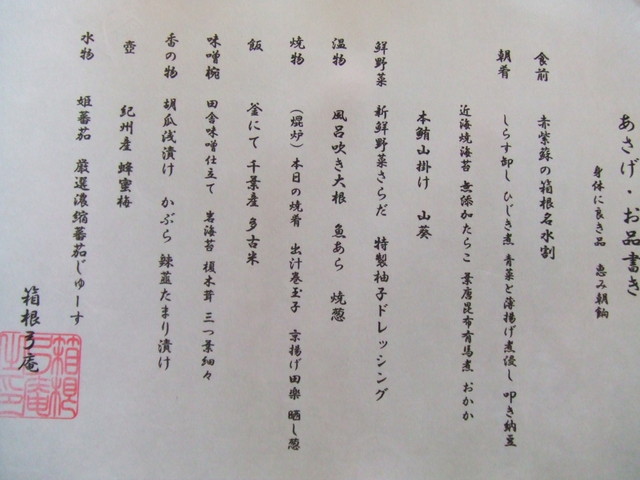 あさげ・お品書き
身体に良き品　恵み朝餉
食前　赤紫蘇の箱根名水割
朝肴　しらす卸し　ひじき煮　青菜と薄揚げ煮浸し　叩き納豆
近海焼海苔　無添加たらこ　葉唐昆布有馬煮　おかか
本鮪山掛け　山葵
鮮野菜　新鮮野菜さらだ　特製柚子ドレッシング
温物　風呂吹き大根　魚あら　焼葱
焼物　（焜炉）本日の焼肴　出汁巻玉子　京揚げ田楽　晒し葱
飯　釜にて　千葉産　多古米
味噌椀　田舎味噌仕立て　岩海苔　榎木茸　三つ葉細々
香の物　胡瓜浅漬け　かぶら　辣韮たまり漬け
壺　紀州産　蜂蜜梅
水物　姫蕃茄　厳選濃縮蕃茄じゅーす
箱根弓庵